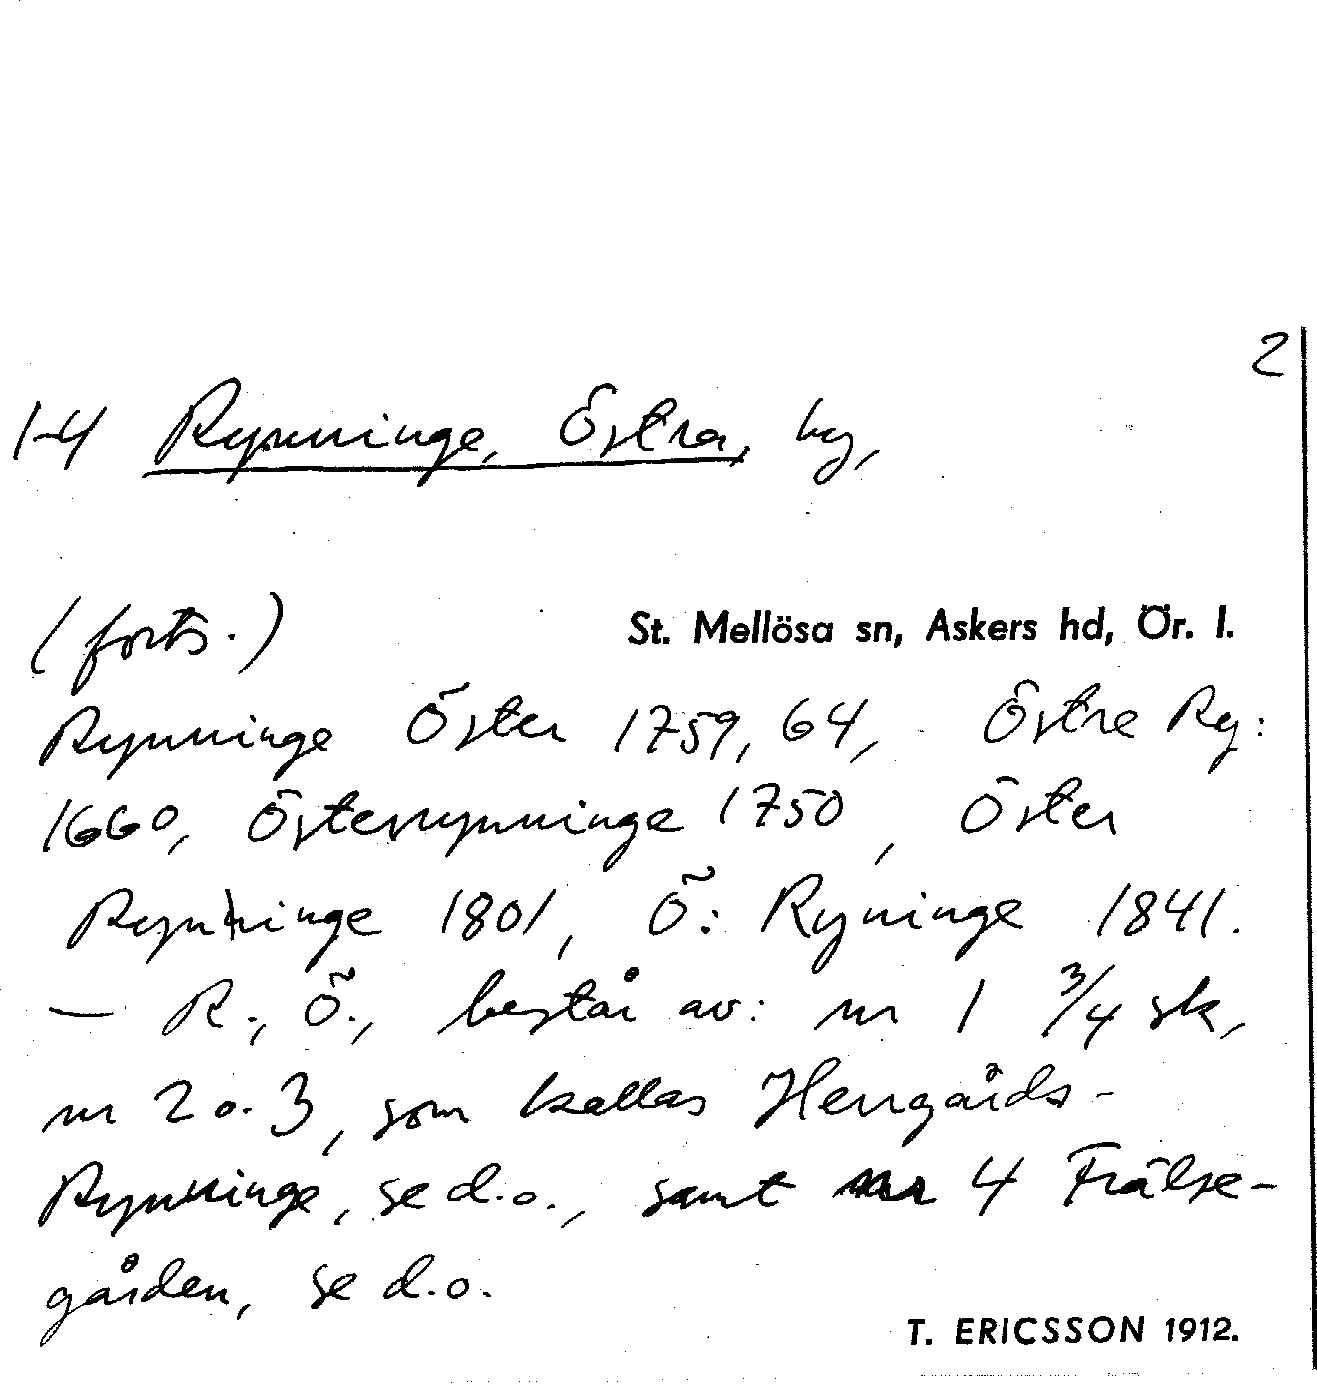 2
1-4 Rynninge, Östra, by,
(forts.)
St. Mellösa sn, Askers hd, Ör. l.
Rynninge Öster 1759, 64, Östre Ry:
1660, Österrynninge 1750, Öster
Rynninge 1801, Ö: Ryninge 1841.
— R., Ö., består av: nr 1 3/4 sk,
nr 2 o. 3, som kallas Herrgårds-
Rynninge, se d.o., samt nr 4 Frälse-
gården, se d.o.
T. ERICSSON 1912.